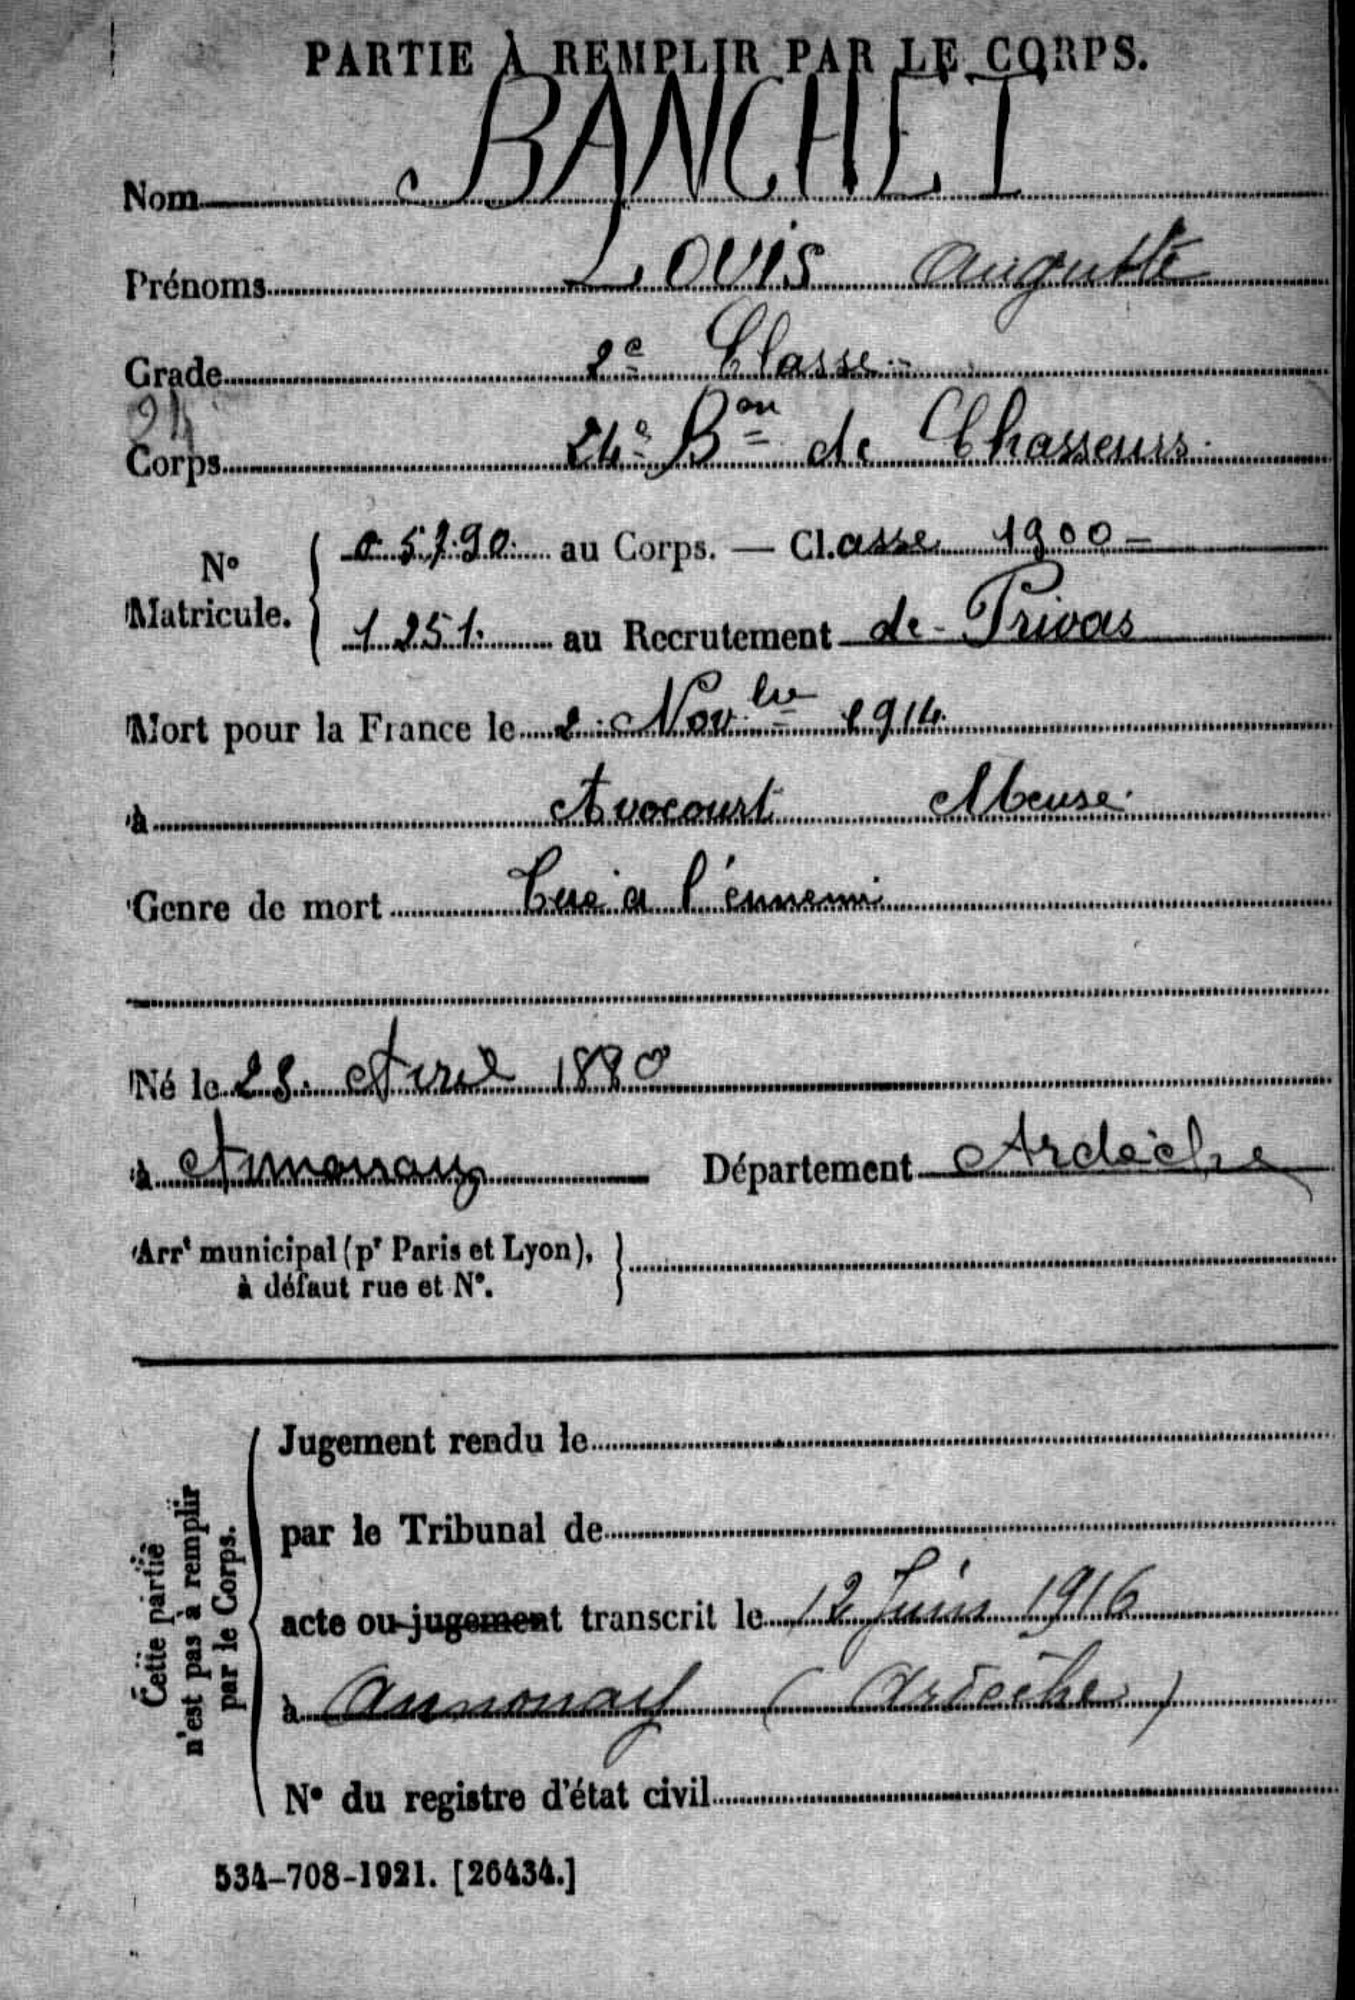 PARTIE À REMPLIR PAR LE CORPS.
Nom BANCHET
Prénoms Louis Auguste
Grade 2e Classe
24
Corps 24e Bon de Chasseurs
No Matricule. { 05790 au Corps. — Cl.asse 1900
1251 au Recrutement de Privas
Mort pour la France le 2 Novbre 1914
à Avocourt Meuse
Genre de mort Tué a l'énnemi
Né le 28 Avril 1880
à Annonay Département Ardèche
Arrt municipal (pr Paris et Lyon), à défaut rue et No. }
Cette partie n'est pas à remplir par le Corps.
Jugement rendu le
par le Tribunal de
acte ou jugement transcrit le 12 Juin 1916
à Annonay (Ardèche)
No du registre d'état civil
534-708-1921. [26434.]